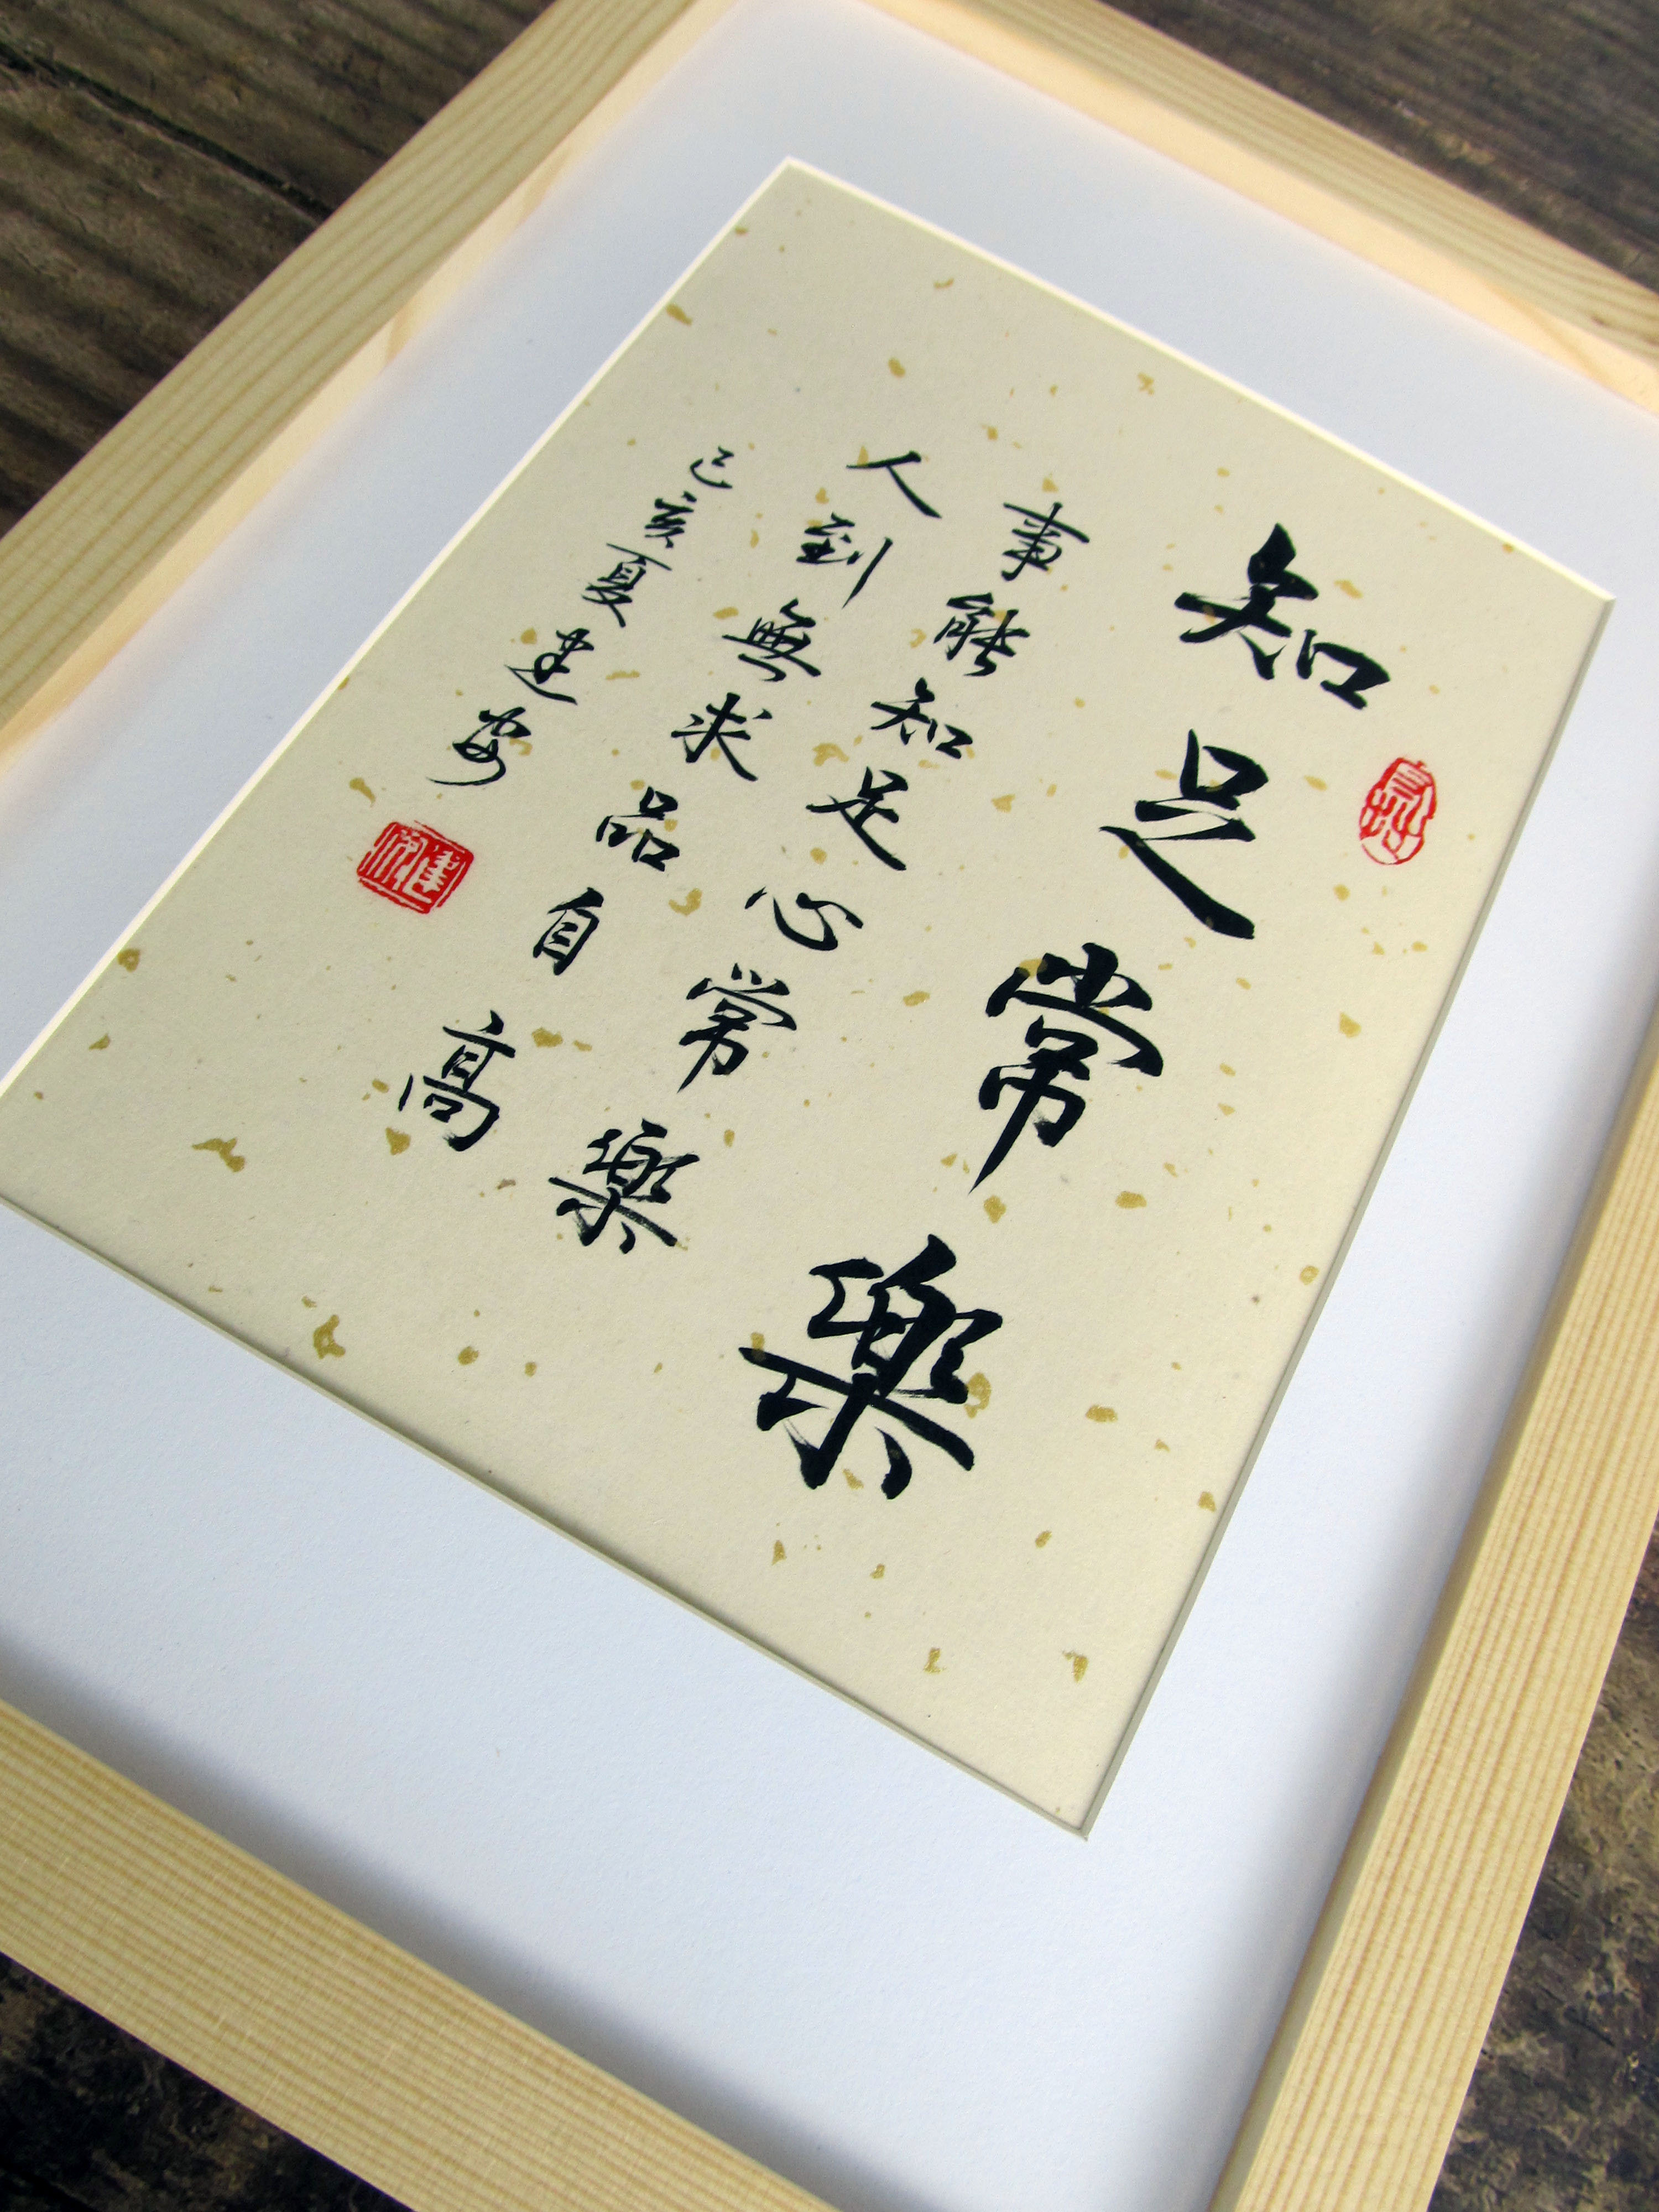 知足常樂
事能知足心常樂
人到無求品自高
己亥夏建安